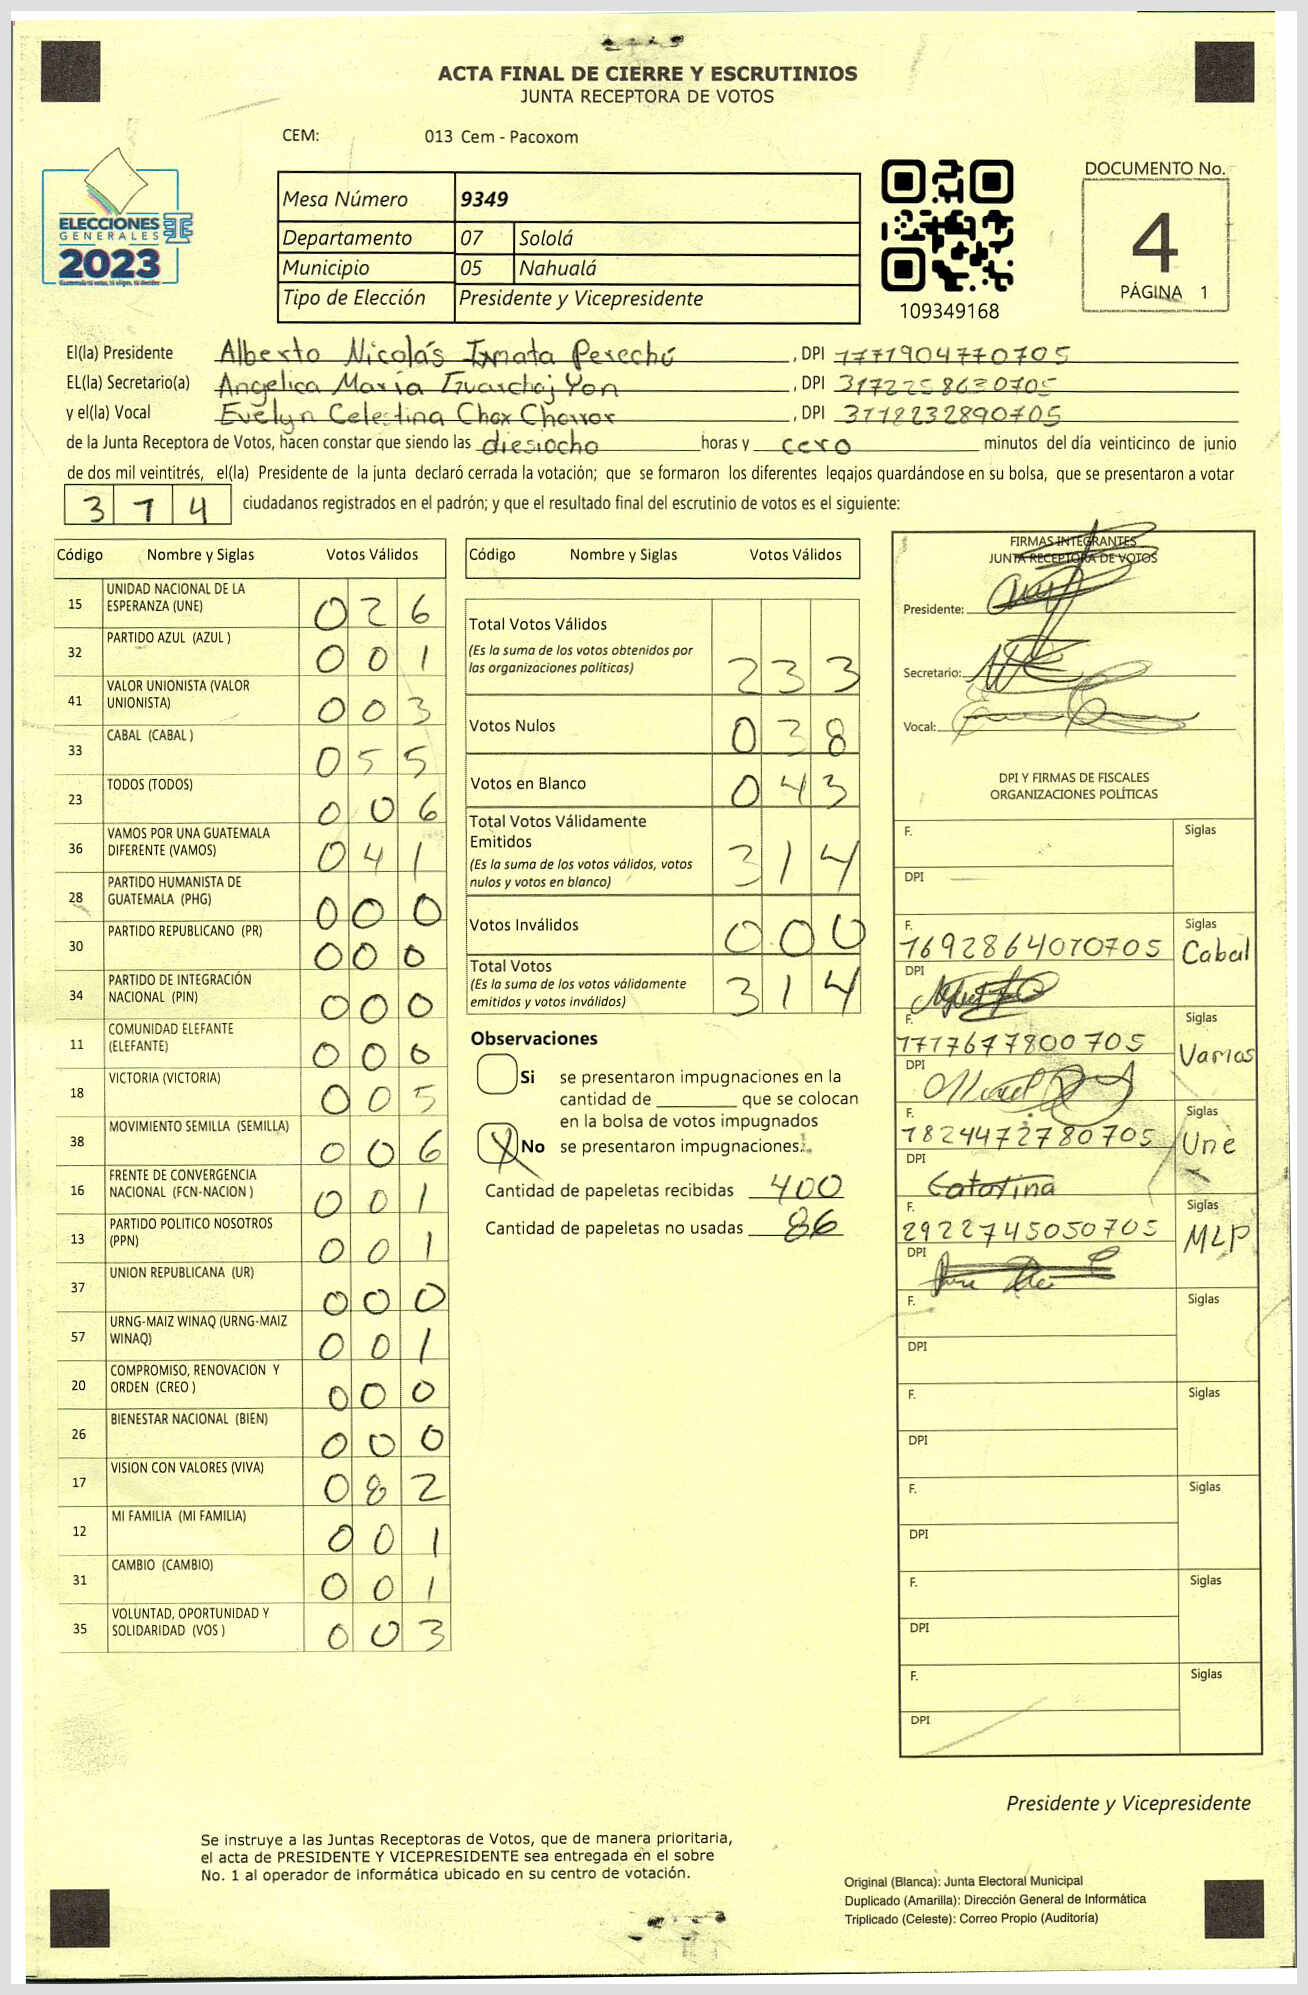 ACTA FINAL DE CIERRE Y ESCRUTINIOS
JUNTA RECEPTORA DE VOTOS
CEM: 013 Cem - Pacoxom
ELECCIONES
GENERALES
2023
Mesa Número 9349
Departamento 07 Sololá
Municipio 05 Nahualá
Tipo de Elección Presidente y Vicepresidente
109349168
DOCUMENTO No.
4
PÁGINA 1
El(la) Presidente Alberto Nicolás Ixmata Perechú, DPI 1771904770705
EL(la) Secretario(a) Angelica María Guarchaj Yon, DPI 3172258630705
y el(la) Vocal Evelyn Celestina Chox, DPI 3118232890705
de la Junta Receptora de Votos, hacen constar que siendo las diesiocho horas y cero minutos del día veinticinco de junio
de dos mil veintitrés, el(la) Presidente de la junta declaró cerrada la votación; que se formaron los diferentes legajos guardándose en su bolsa, que se presentaron a votar
314 ciudadanos registrados en el padrón; y que el resultado final del escrutinio de votos es el siguiente:
Código Nombre y Siglas Votos Válidos
15 UNIDAD NACIONAL DE LA ESPERANZA (UNE) 026
32 PARTIDO AZUL (AZUL ) 001
41 VALOR UNIONISTA (VALOR UNIONISTA) 003
33 CABAL (CABAL ) 055
23 TODOS (TODOS) 006
36 VAMOS POR UNA GUATEMALA DIFERENTE (VAMOS) 041
28 PARTIDO HUMANISTA DE GUATEMALA (PHG) 000
30 PARTIDO REPUBLICANO (PR) 000
34 PARTIDO DE INTEGRACIÓN NACIONAL (PIN) 000
11 COMUNIDAD ELEFANTE (ELEFANTE) 000
18 VICTORIA (VICTORIA) 005
38 MOVIMIENTO SEMILLA (SEMILLA) 006
16 FRENTE DE CONVERGENCIA NACIONAL (FCN-NACION ) 001
13 PARTIDO POLITICO NOSOTROS (PPN) 001
37 UNION REPUBLICANA (UR) 000
57 URNG-MAIZ WINAQ (URNG-MAIZ WINAQ) 001
20 COMPROMISO, RENOVACION Y ORDEN (CREO ) 000
26 BIENESTAR NACIONAL (BIEN) 000
17 VISION CON VALORES (VIVA) 082
12 MI FAMILIA (MI FAMILIA) 001
31 CAMBIO (CAMBIO) 001
35 VOLUNTAD, OPORTUNIDAD Y SOLIDARIDAD (VOS ) 003
Código Nombre y Siglas Votos Válidos
Total Votos Válidos 233
(Es la suma de los votos obtenidos por
las organizaciones políticas)
Votos Nulos 038
Votos en Blanco 043
Total Votos Válidamente
Emitidos 314
(Es la suma de los votos válidos, votos
nulos y votos en blanco)
Votos Inválidos 000
Total Votos 314
(Es la suma de los votos válidamente
emitidos y votos inválidos)
Observaciones
Si se presentaron impugnaciones en la
cantidad de ________ que se colocan
en la bolsa de votos impugnados
X No se presentaron impugnaciones.
Cantidad de papeletas recibidas 400
Cantidad de papeletas no usadas 86
FIRMAS INTEGRANTES
JUNTA RECEPTORA DE VOTOS
Presidente:
Secretario:
Vocal:
DPI Y FIRMAS DE FISCALES
ORGANIZACIONES POLÍTICAS
F. Siglas
DPI
F. 1692864070705 Siglas Cabal
DPI
F. 1717677800705 Siglas Varios
DPI
F. 1824472780705 Siglas Une
DPI Catarina
F. 2922745050705 Siglas MLP
DPI
F. Siglas
DPI
F. Siglas
DPI
F. Siglas
DPI
F. Siglas
DPI
F. Siglas
DPI
Presidente y Vicepresidente
Se instruye a las Juntas Receptoras de Votos, que de manera prioritaria,
el acta de PRESIDENTE Y VICEPRESIDENTE sea entregada en el sobre
No. 1 al operador de informática ubicado en su centro de votación.
Original (Blanca): Junta Electoral Municipal
Duplicado (Amarilla): Dirección General de Informática
Triplicado (Celeste): Correo Propio (Auditoría)